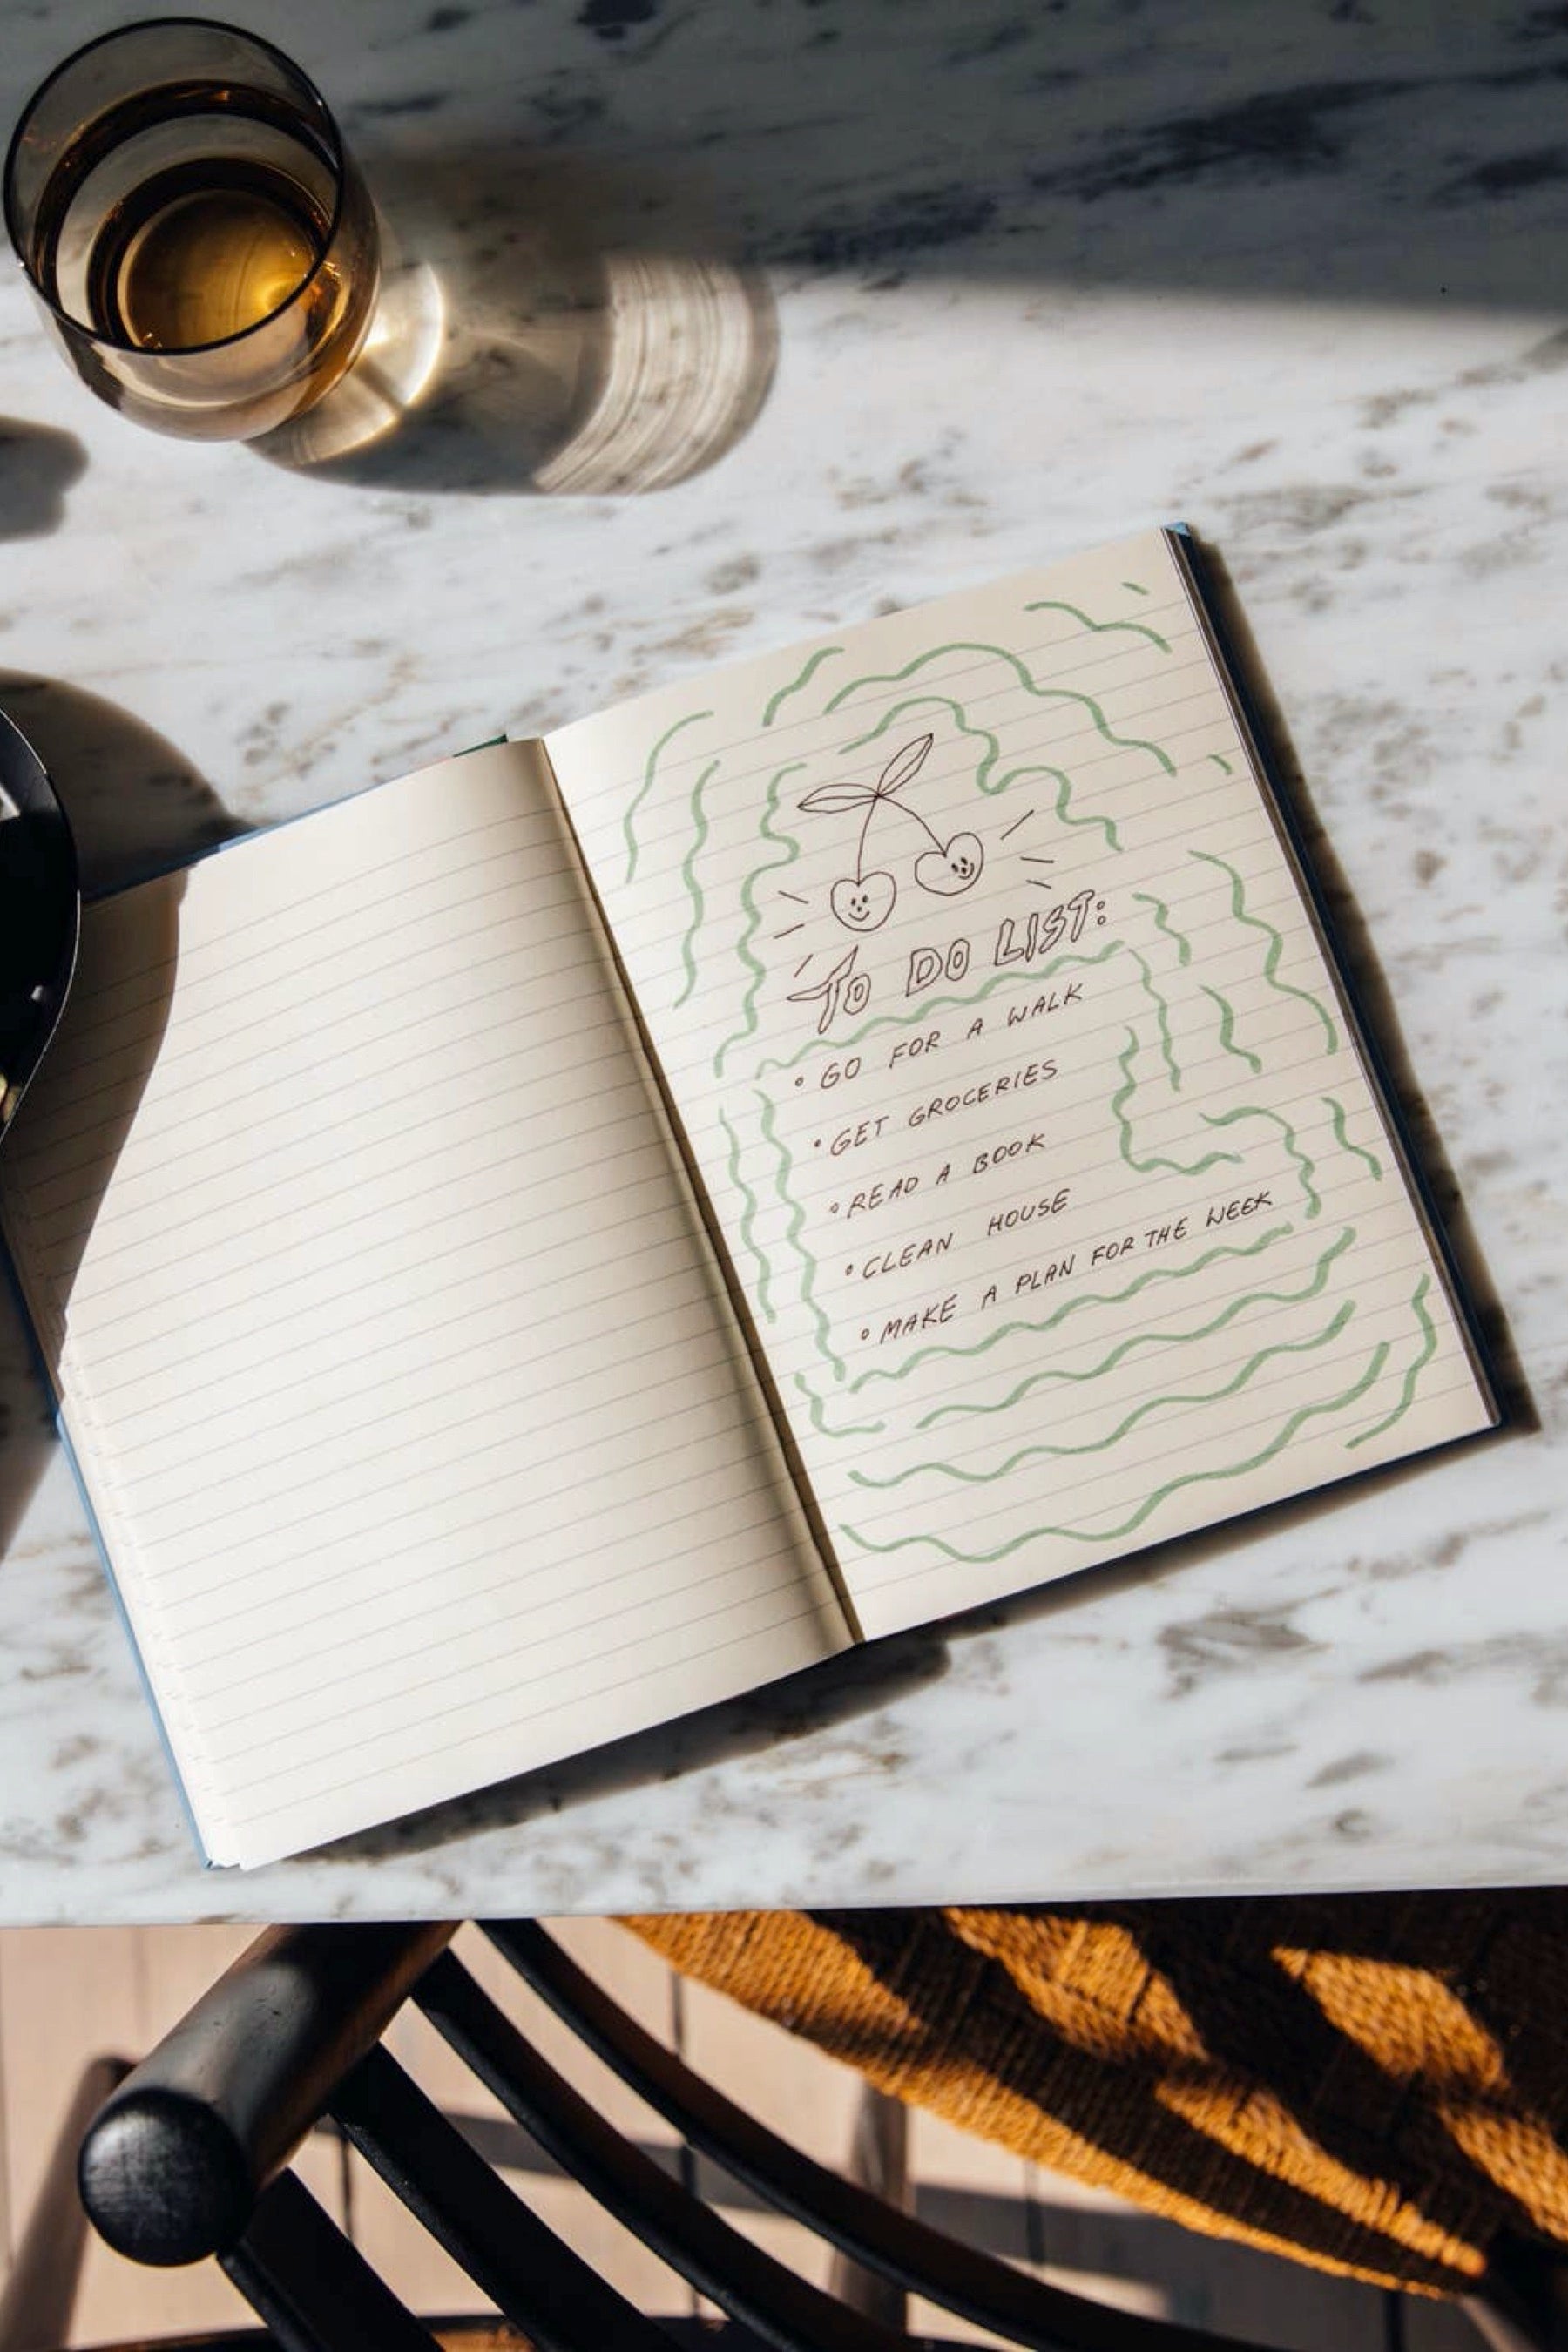 TO DO LIST:
• GO FOR A WALK
• GET GROCERIES
• READ A BOOK
• CLEAN HOUSE
• MAKE A PLAN FOR THE WEEK